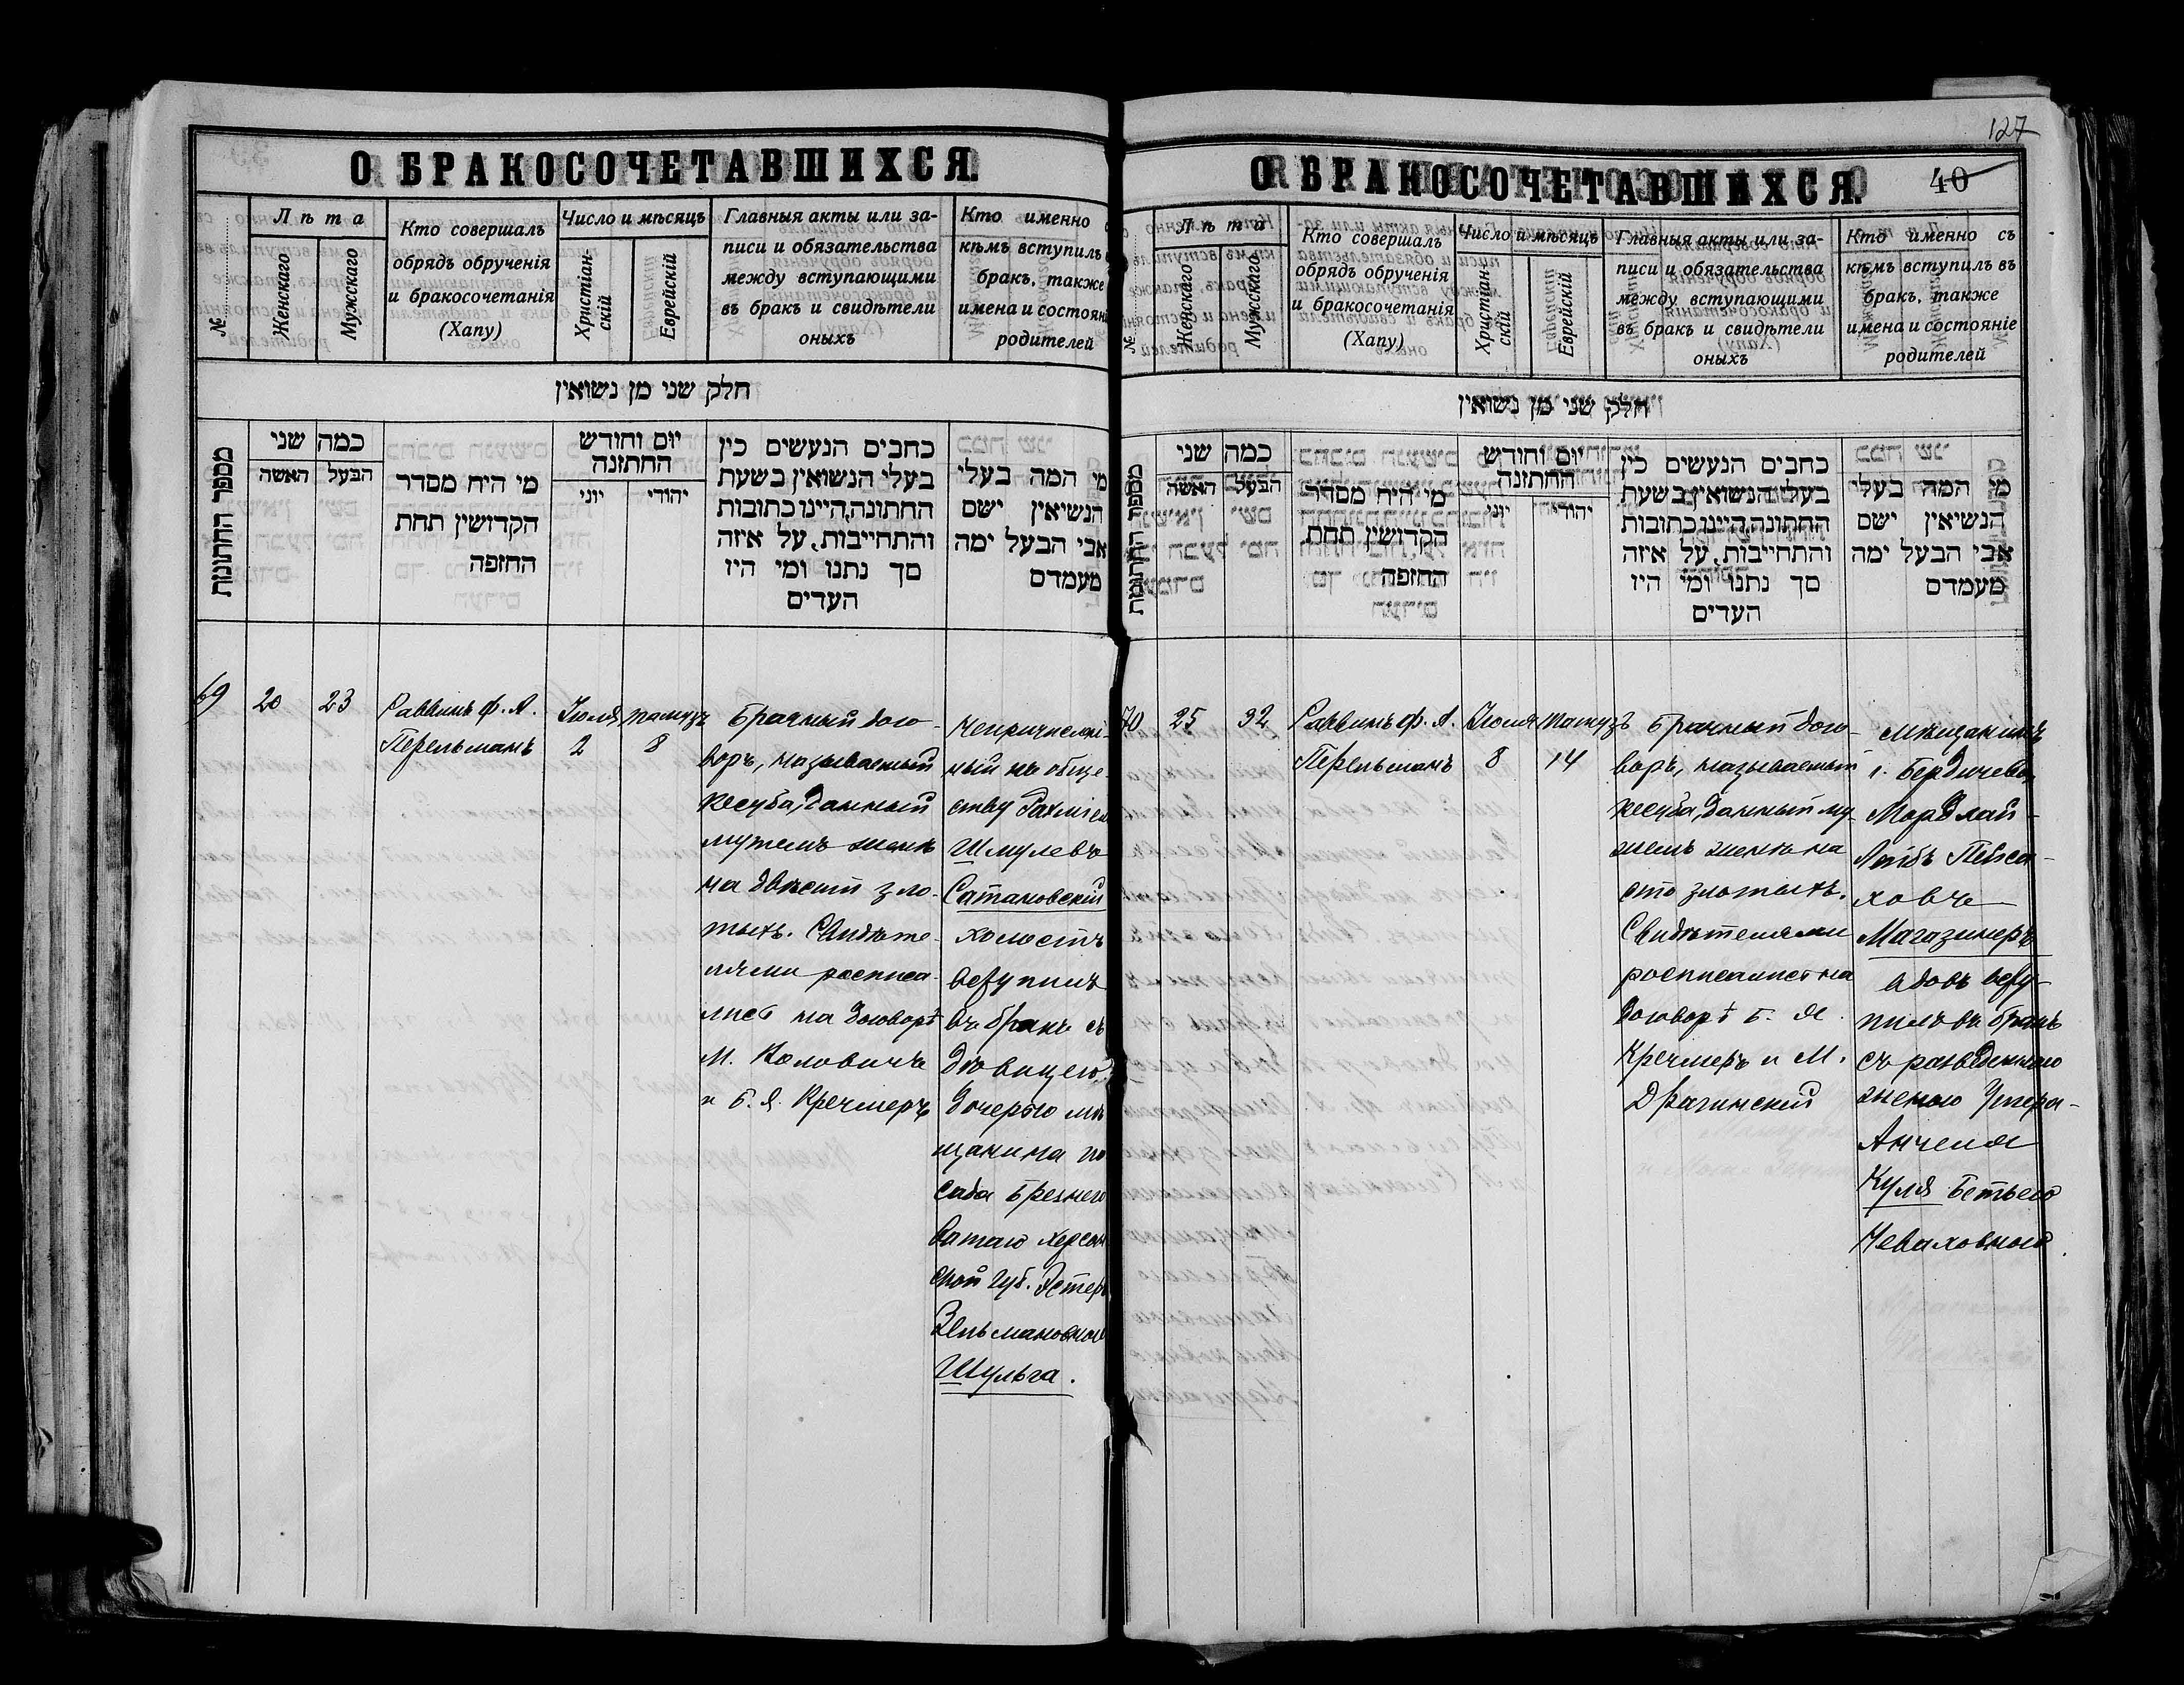 О БРАКОСОЧЕТАВШИХСЯ.
№
Лѣта
Женскаго
Мужскаго
Кто совершалъ
обрядъ обрученія
и бракосочетанія
(Хапу)
Число и мѣсяцъ
Христіан-
скій
Еврейскій
Главныя акты или за-
писи и обязательства
между вступающими
въ бракъ и свидѣтели
оныхъ
Кто именно
кѣмъ вступилъ
бракъ, также
имена и состоян
родителей
חלק שני מן נשואין
מספר החתונות
כמה שני
האשה
הבעל
מי היח מסדר
הקדושין תחת
החזפה
יום וחודש
החתזנה
יוני
יהודי
כחבים הנעשים כין
בעלי הנשואין בשעת
החתונה, היינו כתובות
והתחייבות, על איזה
סך נתנו ומי היז
העדים
מי המה בעלי
הנשיאין ישם
אבי הבעל ימה
מעמדם
69
20
23
Раввинъ Ф. А.
Перельманъ
Іюля
2
тамузъ
8
Брачный дого-
воръ, называемый
кесуба, данный
мужемъ женѣ
на двѣсти зло-
тыхъ. Свидѣте-
лями росписа-
лись на договорѣ
М. Каловичъ
и Б. Я. Кречмеръ
Непричислен-
ный къ обще-
ству Рахміель
Шмулевъ
Сатановскій
холостъ
вступилъ
въ бракъ съ
дѣвицею,
дочерью мѣ
щанина по
сада Березнего
ватаго Херсон
ской губ. Эстеръ
Зельмановною
Шульга.
127
О БРАКОСОЧЕТАВШИХСЯ.
40
№
Лѣта
Женскаго
Мужскаго
Кто совершалъ
обрядъ обрученія
и бракосочетанія
(Хапу)
Число и мѣсяцъ
Христіан-
скій
Еврейскій
Главныя акты или за-
писи и обязательства
между вступающими
въ бракъ и свидѣтели
оныхъ
Кто именно съ
кѣмъ вступилъ въ
бракъ, также
имена и состояніе
родителей
חלק שני מן נשואין
מספר החתונות
כמה שני
האשה
הבעל
מי היח מסדר
הקדושין תחת
החזפה
יום וחודש
החתזנה
יוני
יהודי
כחבים הנעשים כין
בעלי הנשואין בשעת
החתונה, היינו כתובות
והתחייבות, על איזה
סך נתנו ומי היז
העדים
מי המה בעלי
הנשיאין ישם
אבי הבעל ימה
מעמדם
70
25
32
Раввинъ Ф. А.
Перельманъ
Іюля
8
тамузъ
14
Брачный дого-
воръ, называемый
кесуба, данный му-
жемъ женѣ на
сто злотыхъ.
Свидѣтелями
росписались на
договорѣ Б. Я.
Кречмеръ и М.
Драгинский
Мѣщанинъ
г. Бердичева
Мордхай-
Лейбъ Пейса-
ховъ
Магазинеръ
вдовъ всту-
пилъ въ бракъ
съ разведенною
женою
Анчеля
Куля Бетьею
Неваховною.